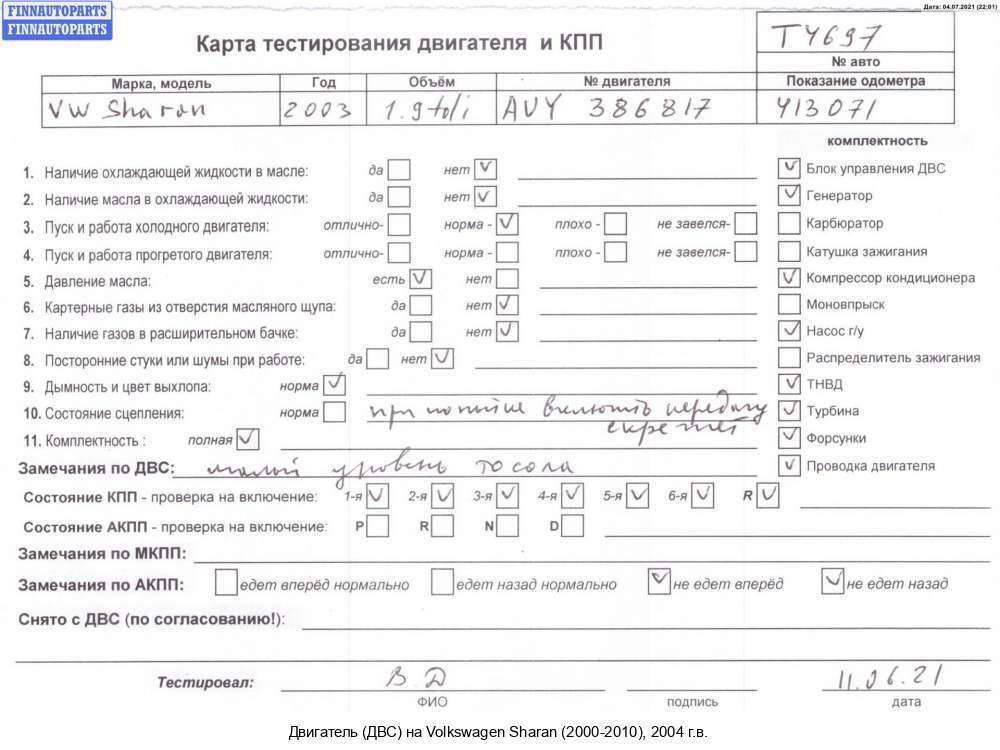 FINNAUTOPARTS
FINNAUTOPARTS
Дата: 04.07.2021 (22:01)
Карта тестирования двигателя и КПП
TY697
№ авто
Марка, модель Год Объём № двигателя Показание одометра
VW Sharan 2003 1.9tdi AVY 386817 413071
комплектность
1. Наличие охлаждающей жидкости в масле: да нет Блок управления ДВС
2. Наличие масла в охлаждающей жидкости: да нет Генератор
3. Пуск и работа холодного двигателя: отлично- норма - плохо - не завелся- Карбюратор
4. Пуск и работа прогретого двигателя: отлично- норма - плохо - не завелся- Катушка зажигания
5. Давление масла: есть нет Компрессор кондиционера
6. Картерные газы из отверстия масляного щупа: да нет Моновпрыск
7. Наличие газов в расширительном бачке: да нет Насос г/у
8. Посторонние стуки или шумы при работе: да нет Распределитель зажигания
9. Дымность и цвет выхлопа: норма ТНВД
10. Состояние сцепления: норма при попытке включить передачу Турбина
скрежет
11. Комплектность : полная Форсунки
Замечания по ДВС: малый уровень тосола Проводка двигателя
Состояние КПП - проверка на включение: 1-я 2-я 3-я 4-я 5-я 6-я R
Состояние АКПП - проверка на включение: P R N D
Замечания по МКПП:
Замечания по АКПП: едет вперёд нормально едет назад нормально не едет вперёд не едет назад
Снято с ДВС (по согласованию!):
Тестировал: В Д 11.06.21
ФИО подпись дата
Двигатель (ДВС) на Volkswagen Sharan (2000-2010), 2004 г.в.